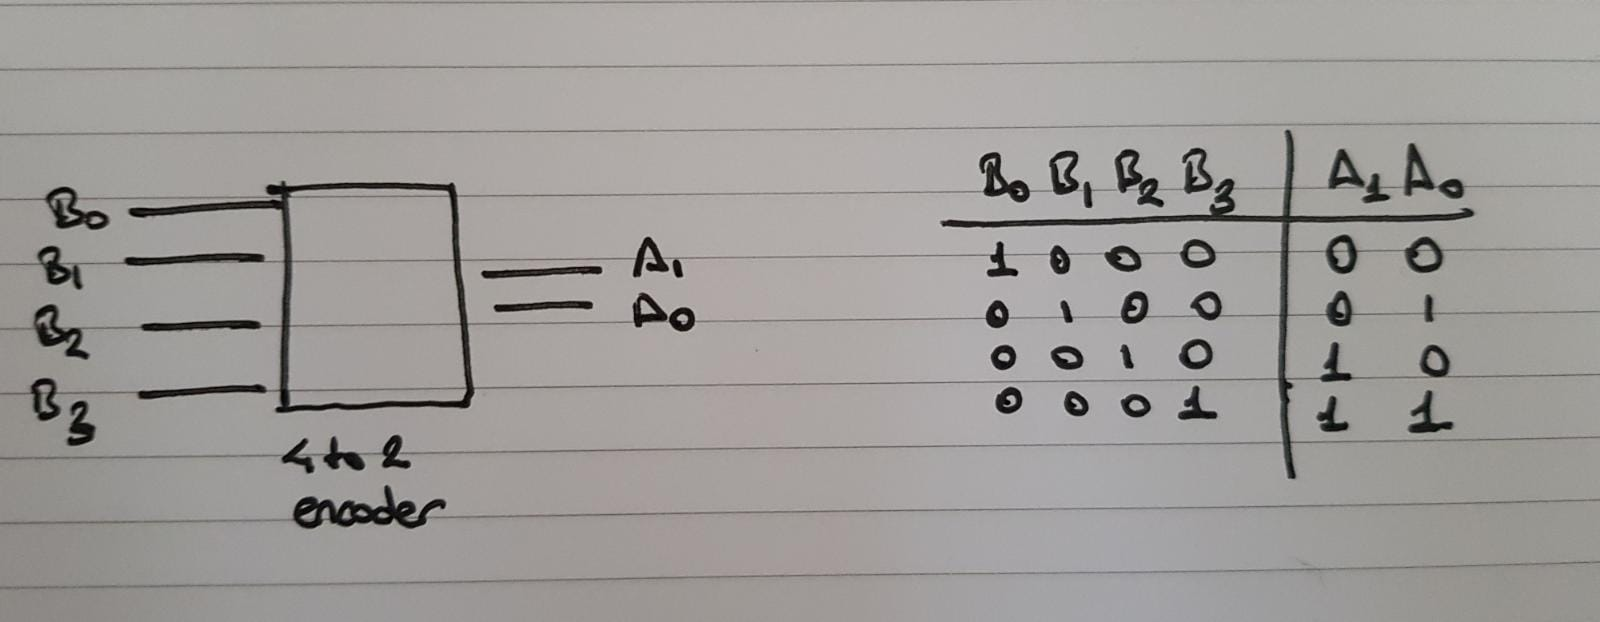 B0
B1
B2
B3
A1
A0
4 to 2
encoder
B0 B1 B2 B3 A1 A0
1 0 0 0 0 0
0 1 0 0 0 1
0 0 1 0 1 0
0 0 0 1 1 1